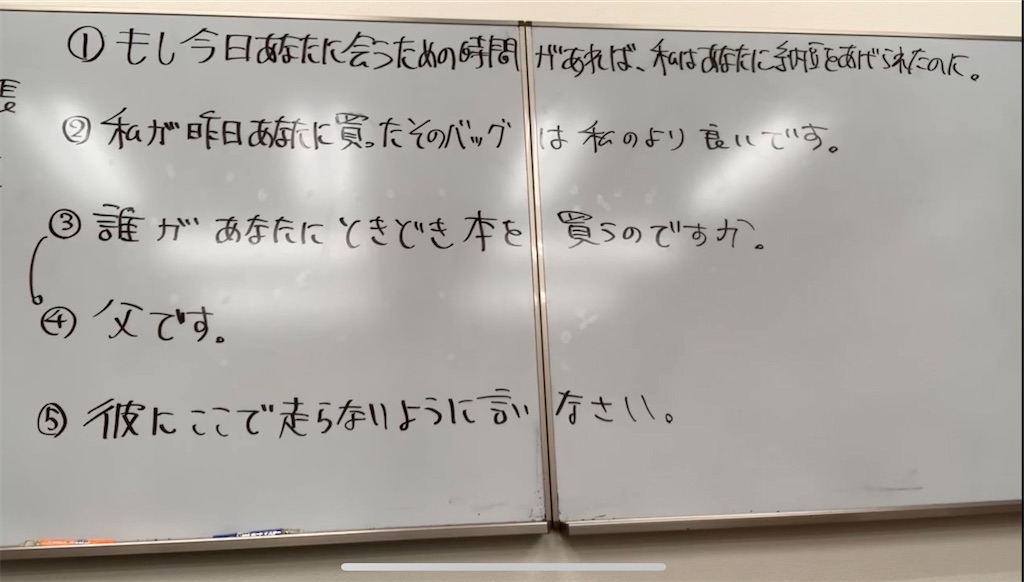 ① もし今日あなたに会うための時間があれば、私はあなたに納豆をあげられたのに。
② 私が昨日あなたに買ったそのバッグは私のより良いです。
③ 誰があなたにときどき本を買うのですか。
④ 父です。
⑤ 彼にここで走らないように言いなさい。